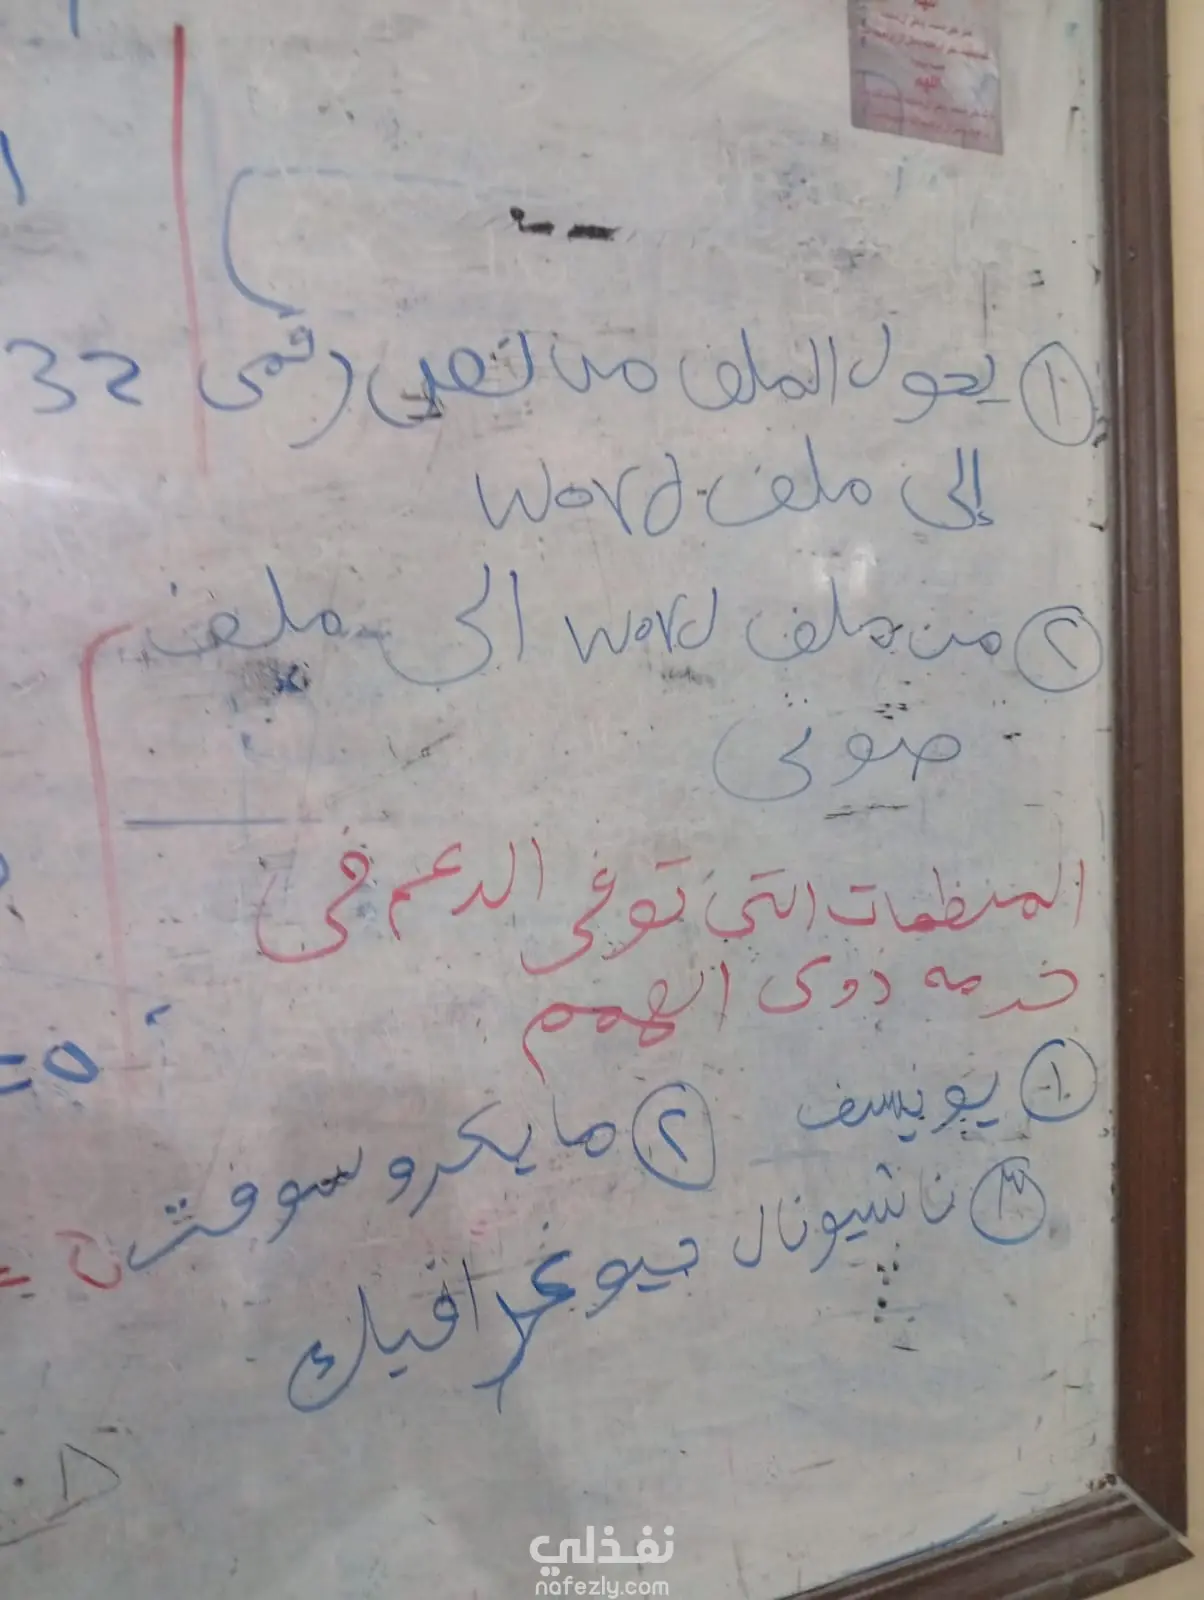 ١ يحول الملف من نصى رقمى 32
إلى ملف word
٢ من ملف word الى ملف
صوتى
المنظمات التى توفى الدعم فى
خدمه ذوى الهمم
١ يونيسف ٢ مايكروسوفت
٣ ناشيونال جيوغرافيك
نفذلي
nafezly.com